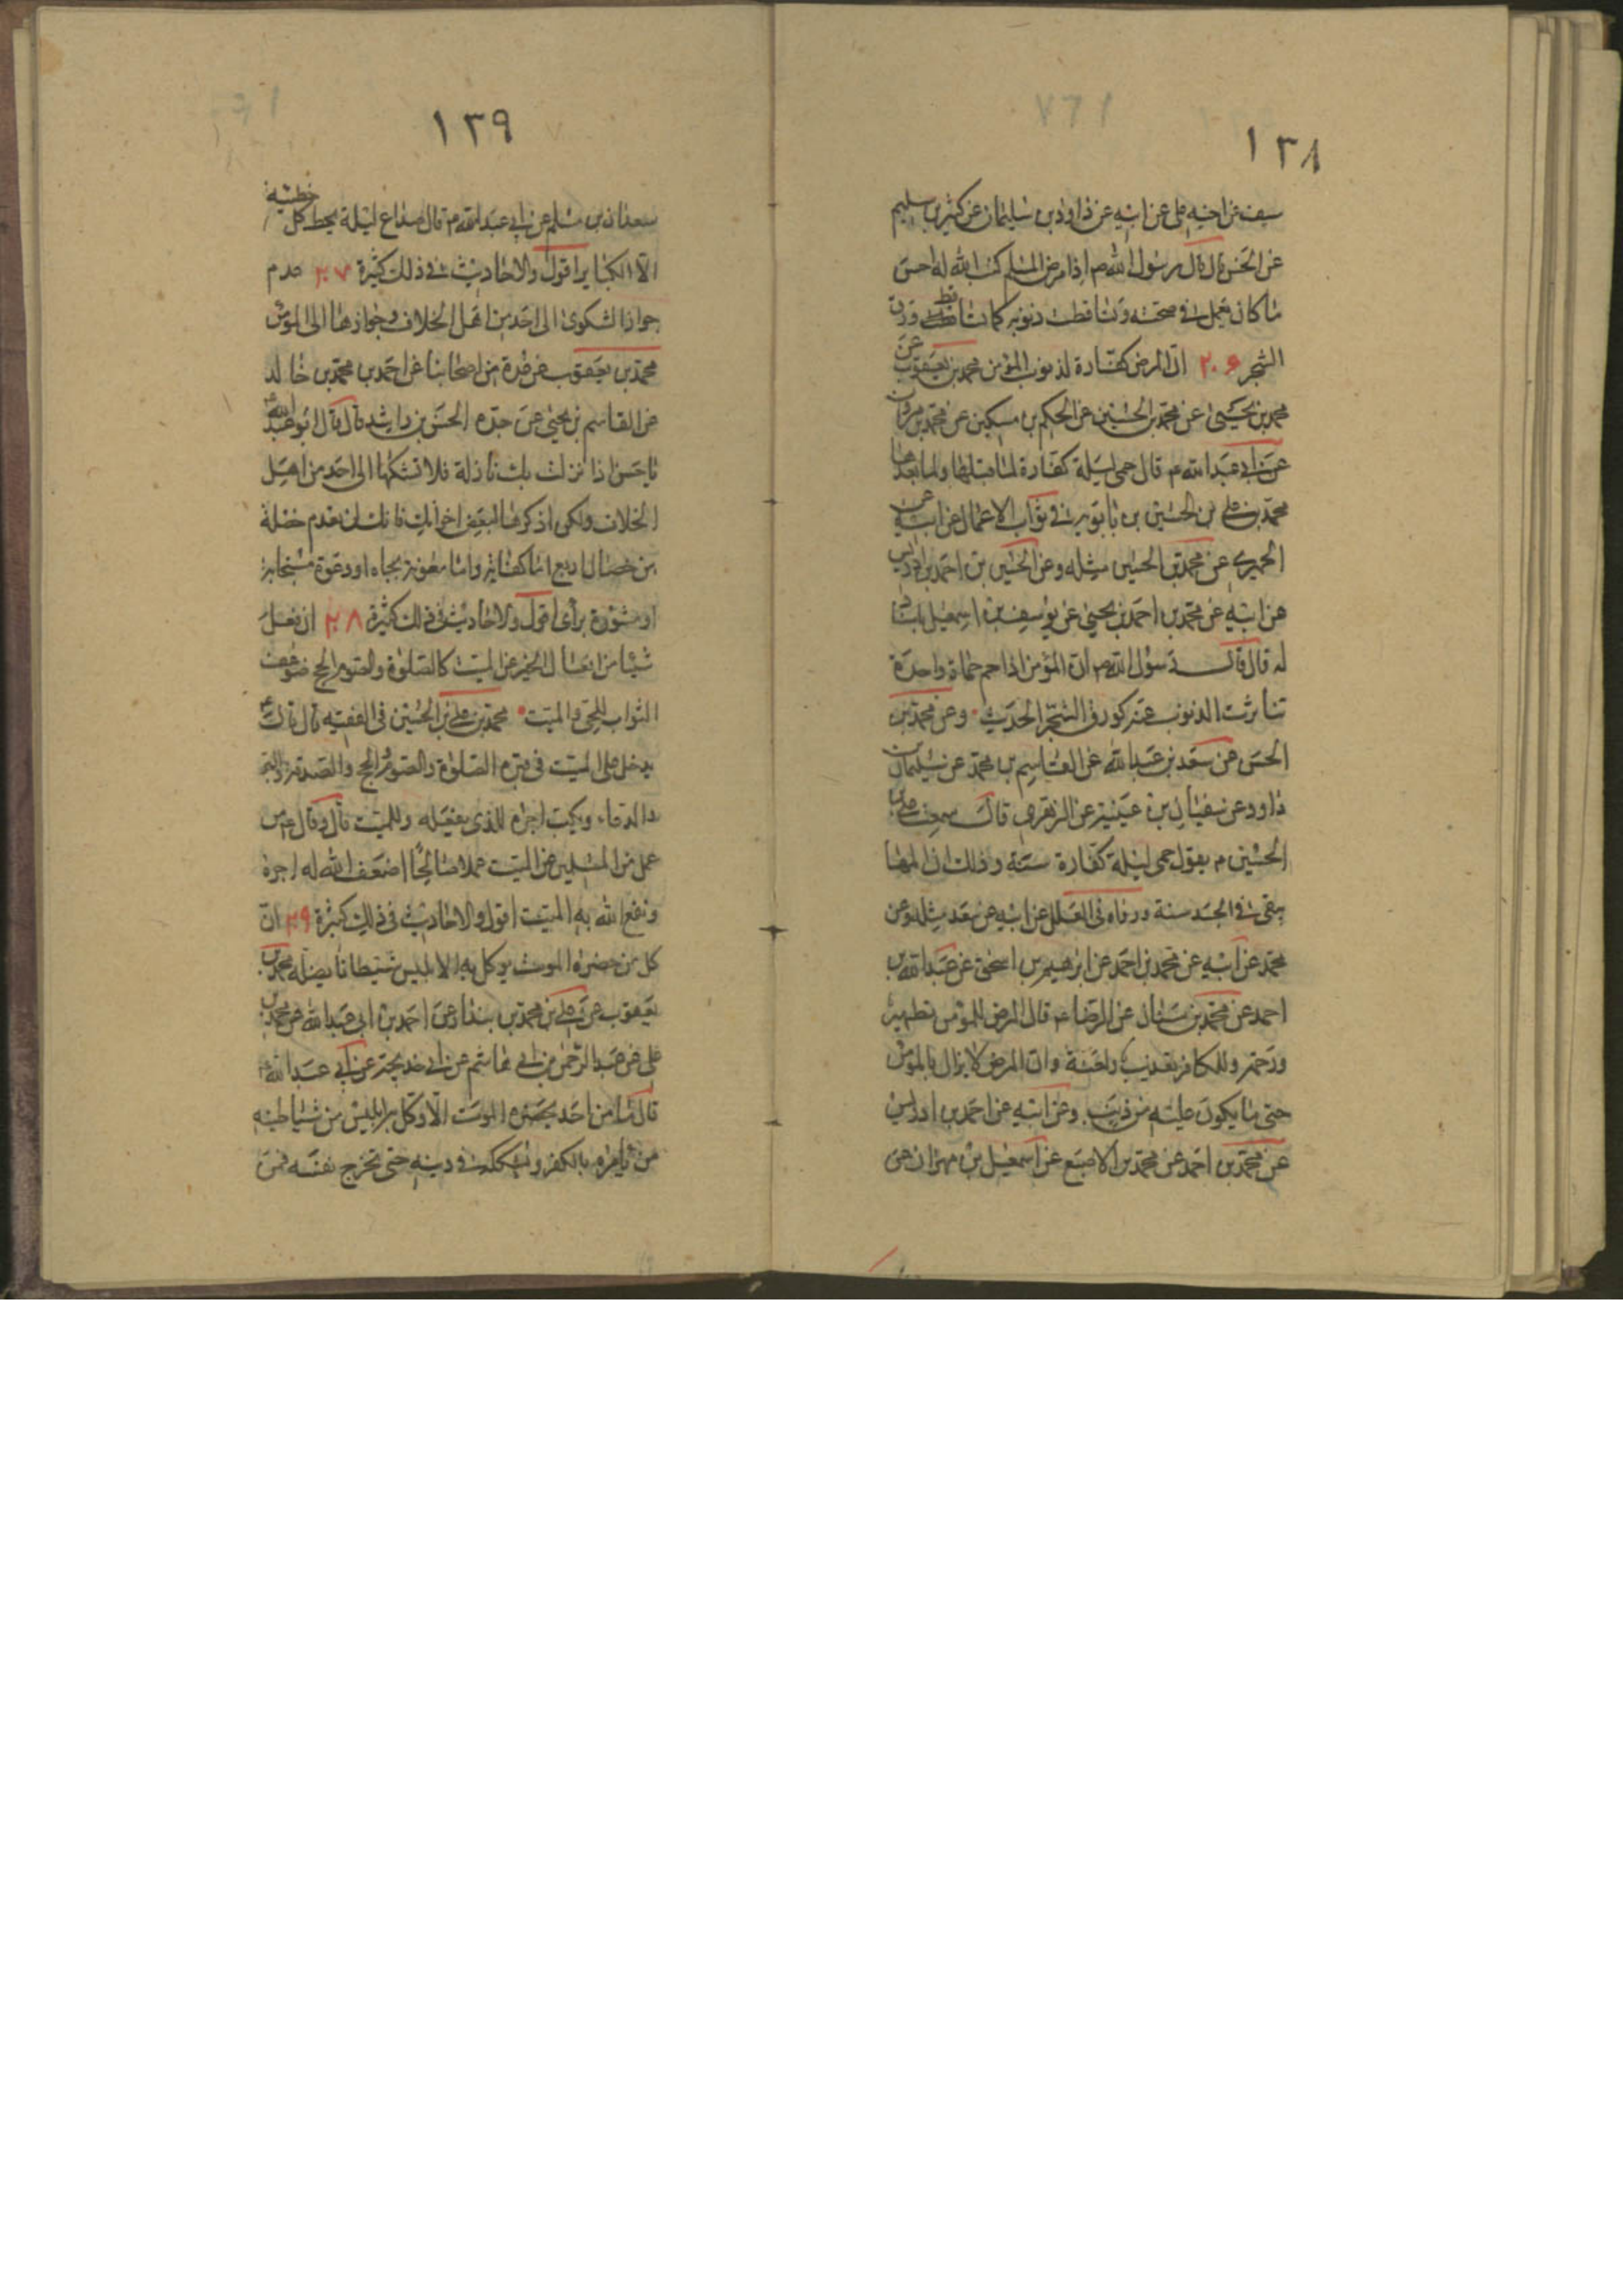 ١٣٨
سيف عن اخيه علي عن ابيه عن داود بن سليمان عن كثير بن سليم
عن الحسن قال قال رسول الله ص اذا مرض المسلم كتب الله له احسن
ما كان يعمل في صحته وتساقطت ذنوبه كما يتساقط ورق
الشجر ٢٠٦ ان المرض كفارة لذنوب المؤمن محمد بن يعقوب عن
محمد بن يحيى عن محمد بن الحسين عن الحكم بن مسكين عن محمد بن مروان
عن ابي عبد الله ع قال حمى ليلة كفارة لما قبلها ولما بعدها
محمد بن علي بن الحسين بن بابويه في ثواب الاعمال عن ابيه عن
الحميري عن محمد بن الحسين مثله وعن الحسين بن احمد بن ادريس
عن ابيه عن محمد بن احمد بن يحيى عن يوسف بن اسمعيل باسناد
له قال قال رسول الله ص ان المؤمن اذا حم حماة واحدة
تناثرت الذنوب عنه كورق الشجر الحديث وعن محمد بن
الحسن عن سعد بن عبد الله عن القاسم بن محمد عن سليمان بن
داود عن سفيان بن عيينة عن الزهري قال سمعت علي بن
الحسين م يقول حمى ليلة كفارة سنة وذلك ان المها
يبقى في الجسد سنة ورواه في العلل عن ابيه عن سعد مثله وعن
محمد عن ابيه عن محمد بن احمد عن ابرهيم بن اسحق عن عبد الله بن
احمد عن محمد بن سنان عن الرضا ع قال المرض للمؤمن تطهير
ورحمة وللكافر تعذيب ولعنة وان المرض لا يزال بالمؤمن
حتى ما يكون عليه من ذنب وعن ابيه عن احمد بن ادريس
عن محمد بن احمد عن محمد بن الاصبع عن اسمعيل بن مهران عن
١٣٩
سعدان بن مسلم عن ابي عبد الله م قال صداع ليلة يحط كل خطيئة
الا الكباير اقول والاحاديث في ذلك كثيرة ٢٠٧ عدم
جواز الشكوى الى احد من اهل الخلاف وجوازها الى المؤمن
محمد بن يعقوب عن عدة من اصحابنا عن احمد بن محمد بن خالد
عن القاسم بن يحيى عن جده الحسن بن راشد قال قال ابو عبد الله ع
يا حسن اذا نزلت بك نازلة فلا تشكها الى احد من اهل
الخلاف ولكن اذكرها لبعض اخوانك فانك لن تعدم خصلة
من خصال اربع اما كفاية واما معونة بجاه او دعوة مستجابة
او مشورة برأى اقول والاحاديث في ذلك كثيرة ٢٠٨ ان فعل
شيئا من افعال الخير عن الميت كالصلوة والصوم والحج ضوعف
الثواب للحي والميت محمد بن علي بن الحسين في الفقيه قال قال ع
يدخل على الميت في قبره الصلوة والصوم والحج والصدقة والبر
والدعاء ويكتب اجره للذي يفعله وللميت قال وقال ع من
عمل من المسلمين عن الميت عملا صالحا اضعف الله له اجره
ونفع الله به الميت اقول والاحاديث في ذلك كثيرة ٢٠٩ ان
كل من حضره الموت يوكل به الابليس شيطانا يضله محمد بن
يعقوب عن علي بن محمد بن بندار عن احمد بن ابي عبد الله عن محمد بن
علي عن عبد الرحمن بن ابي هاشم عن ابي خديجة عن ابي عبد الله ع
قال ما من احد يحضره الموت الا وكل به ابليس من شياطينه
من يأمره بالكفر ويشككه في دينه حتى تخرج نفسه فمن